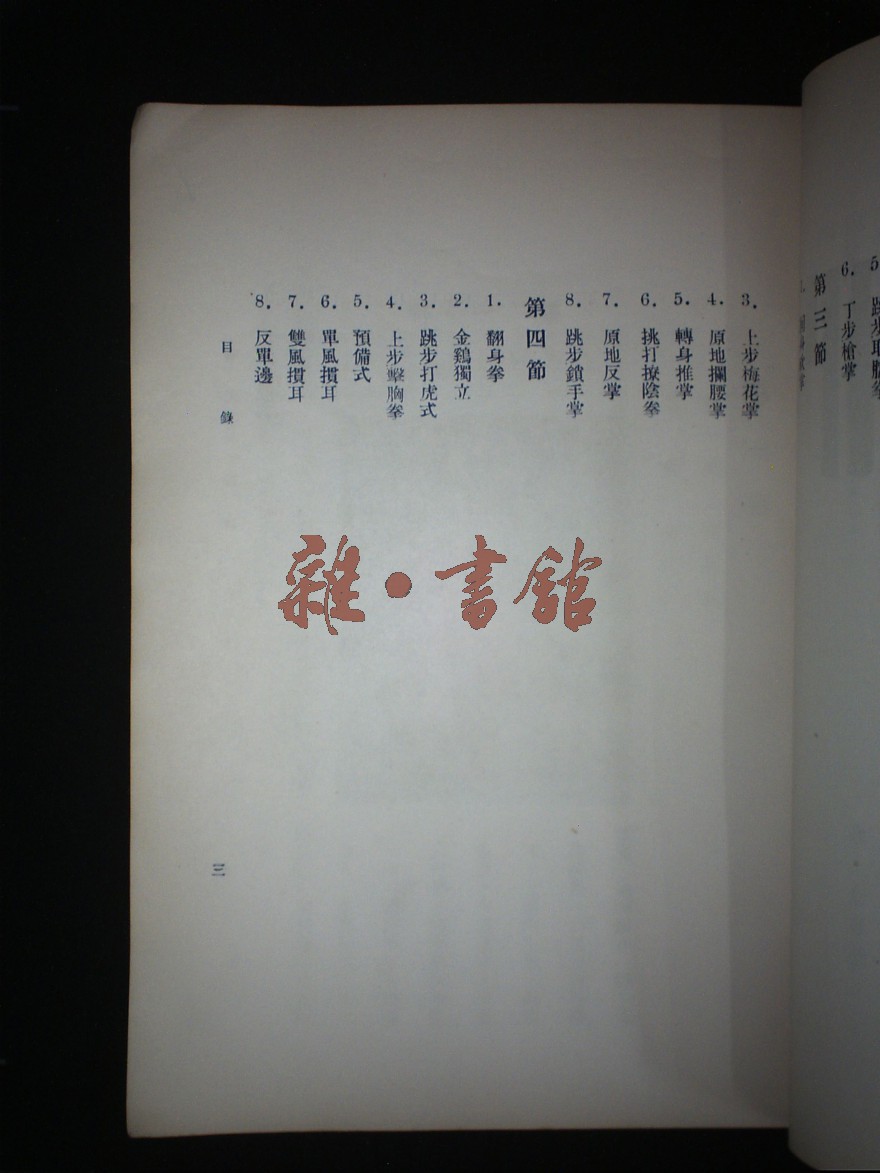 6. 丁步槍掌
第三節
3. 上步梅花掌
4. 原地攔腰掌
5. 轉身推掌
6. 挑打撩陰拳
7. 原地反掌
8. 跳步鎖手掌
第四節
1. 翻身拳
2. 金鷄獨立
3. 跳步打虎式
4. 上步擊胸拳
5. 預備式
6. 單風摜耳
7. 雙風摜耳
8. 反單邊
目錄
三
雜·書館